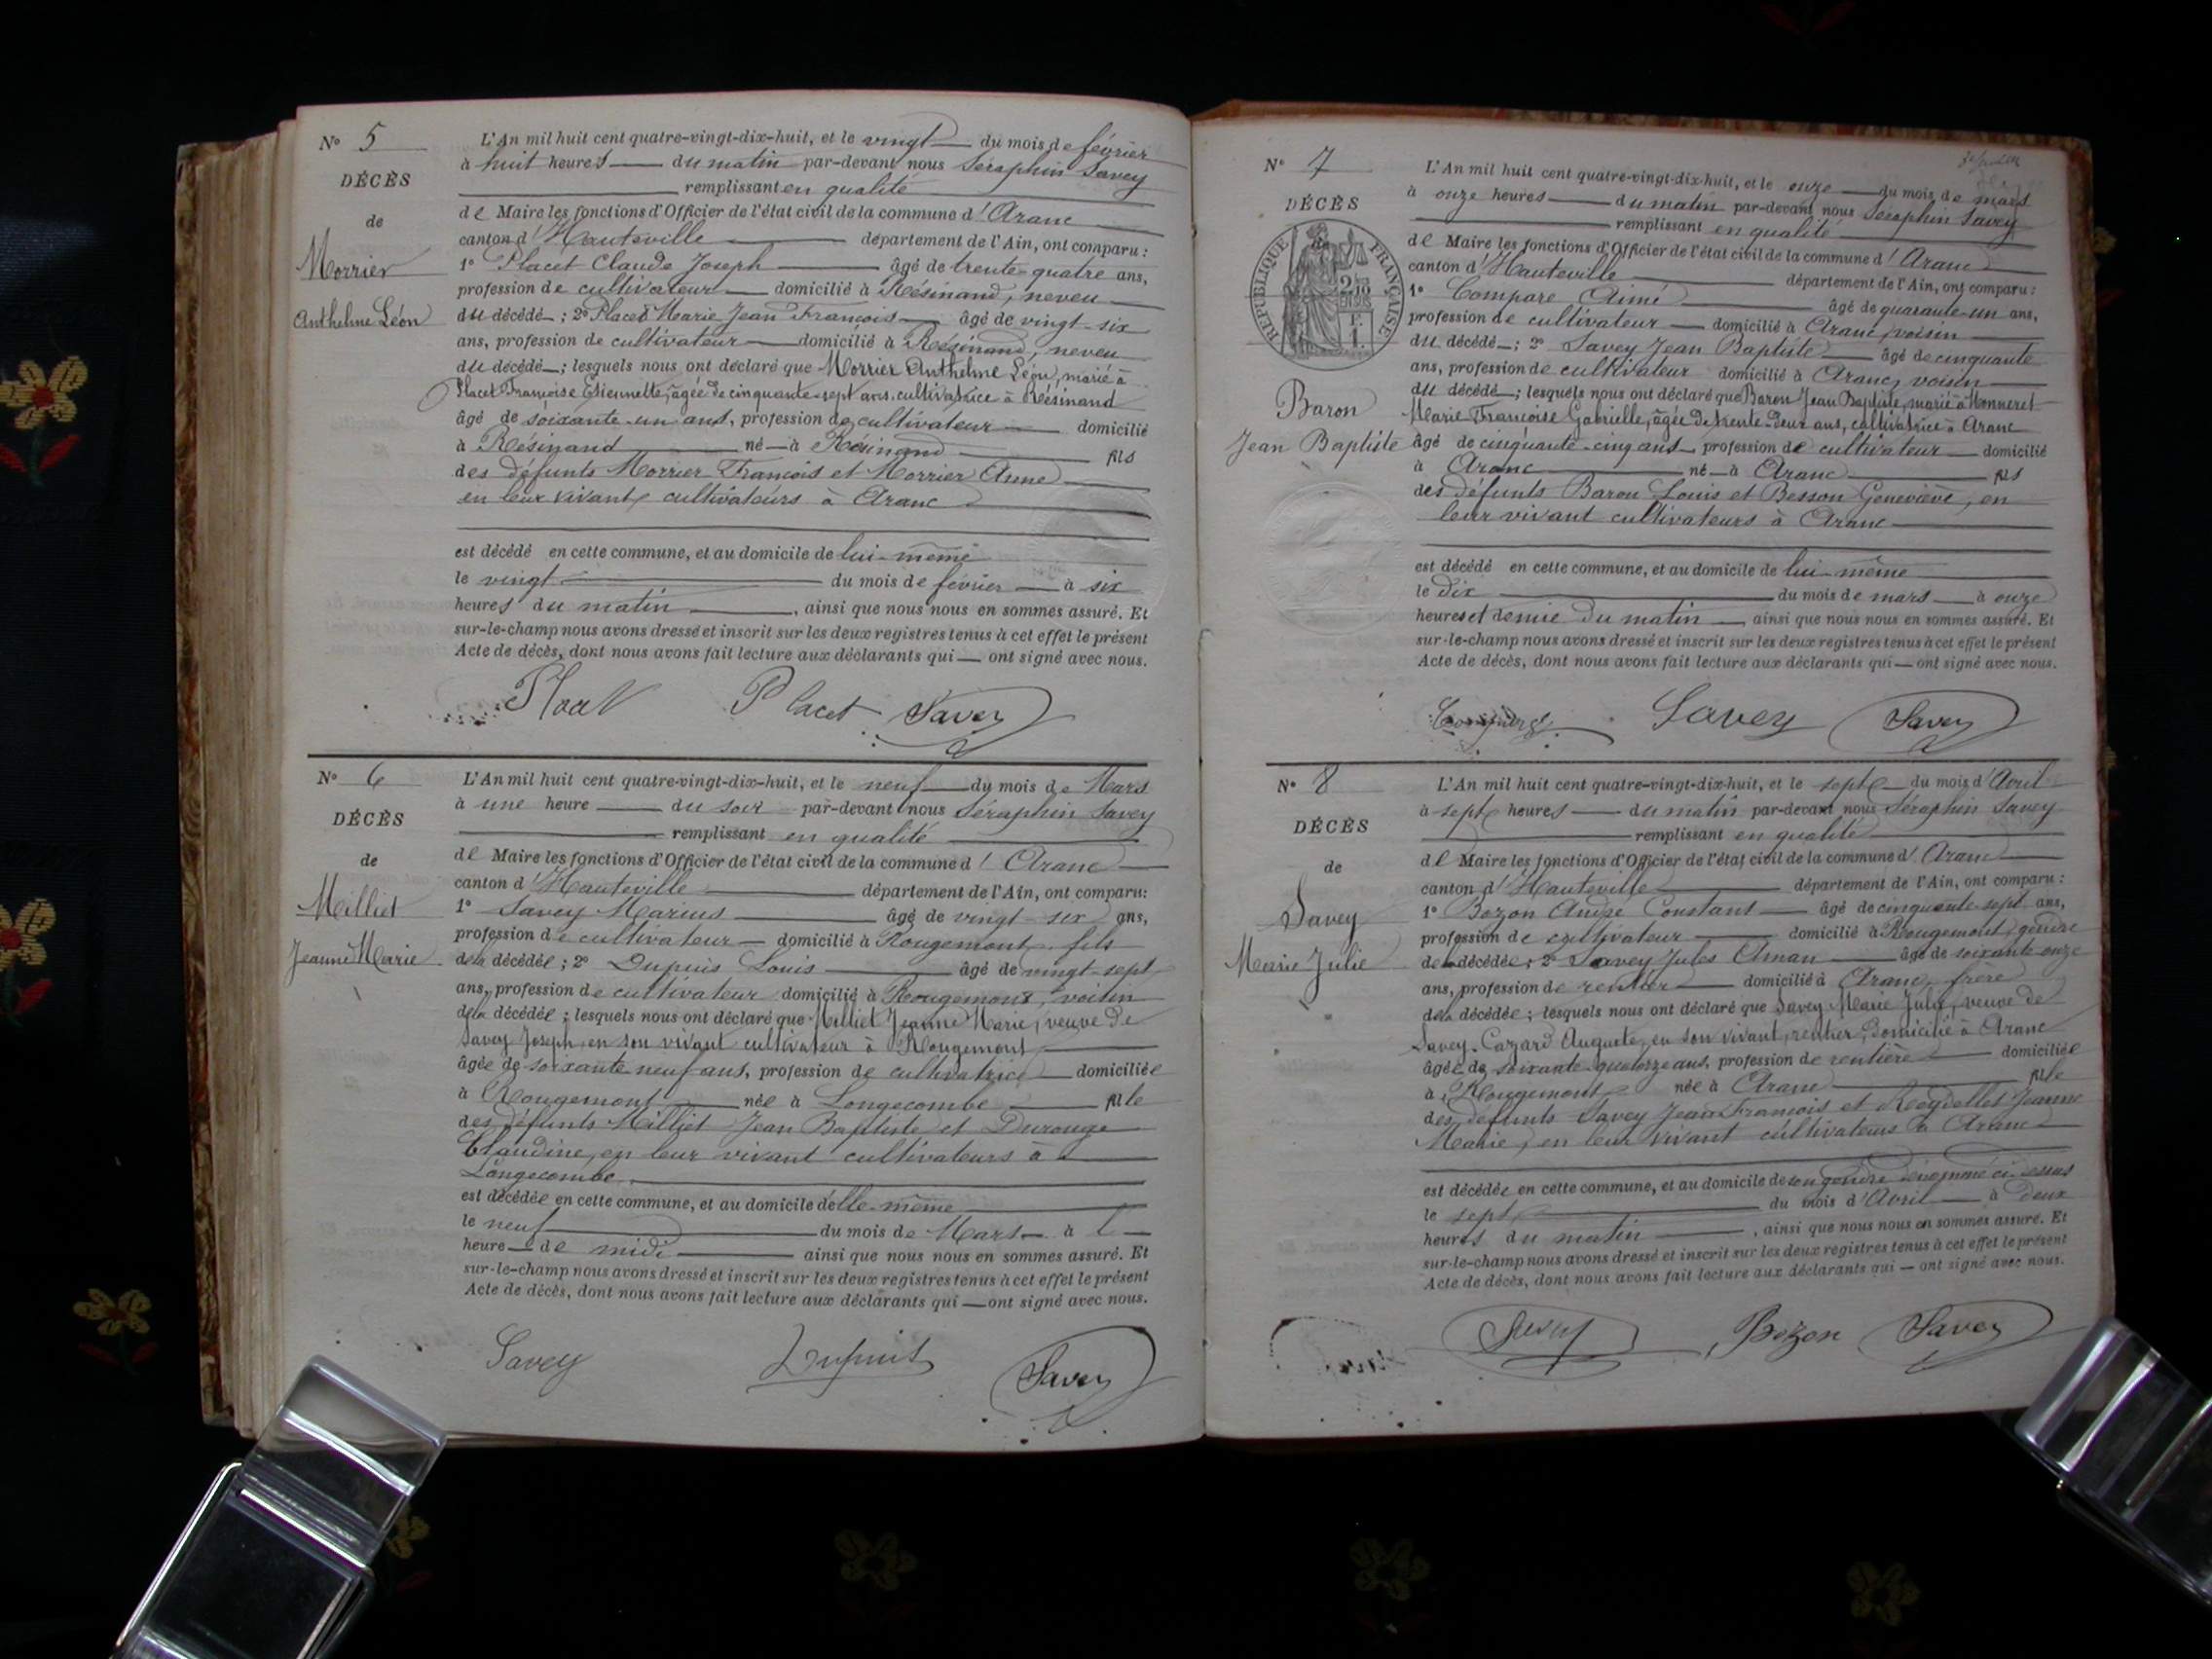 N° 5
DÉCÈS
de
Morrier
Anthelme Léon
L'An mil huit cent quatre-vingt-dix-huit, et le vingt du mois de février
à huit heures du matin par-devant nous Séraphin Savey
remplissant en qualité
de Maire les fonctions d'Officier de l'état civil de la commune d'Aranc
canton d'Hauteville département de l'Ain, ont comparu :
1° Placet Claude Joseph âgé de trente-quatre ans,
profession de cultivateur domicilié à Résinand, neveu
du décédé ; 2° Placet Marie Jean François âgé de vingt-six
ans, profession de cultivateur domicilié à Résinand, neveu
du décédé ; lesquels nous ont déclaré que Morrier Anthelme Léon, marié à
Placet Françoise Etiennette, âgée de cinquante-sept ans, cultivatrice à Résinand
âgé de soixante-un ans, profession de cultivateur domicilié
à Résinand né à Résinand fils
des défunts Morrier François et Morrier Anne
en leur vivant cultivateurs à Aranc
est décédé en cette commune, et au domicile de lui-même
le vingt du mois de février à six
heures du matin, ainsi que nous nous en sommes assuré. Et
sur-le-champ nous avons dressé et inscrit sur les deux registres tenus à cet effet le présent
Acte de décès, dont nous avons fait lecture aux déclarants qui ont signé avec nous.
Placet Savey
N° 6
DÉCÈS
de
Milliet
Jeanne Marie
L'An mil huit cent quatre-vingt-dix-huit, et le neuf du mois de Mars
à une heure du soir par-devant nous Séraphin Savey
remplissant en qualité
de Maire les fonctions d'Officier de l'état civil de la commune d'Aranc
canton d'Hauteville département de l'Ain, ont comparu:
1° Savey Marius âgé de vingt-six ans,
profession de cultivateur domicilié à Rougemont, fils
de la décédée ; 2° Dupuis Louis âgé de vingt-sept
ans, profession de cultivateur domicilié à Rougemont, voisin
de la décédée ; lesquels nous ont déclaré que Milliet Jeanne Marie, veuve de
Savey Joseph, en son vivant cultivateur à Rougemont
âgée de soixante neuf ans, profession de cultivatrice domiciliée
à Rougemont née à Longecombe fille
des défunts Milliet Jean Baptiste et Durouge
Claudine, en leur vivant cultivateurs à
Longecombe
est décédée en cette commune, et au domicile d'elle-même
le neuf du mois de Mars à l
heure de midi ainsi que nous nous en sommes assuré. Et
sur-le-champ nous avons dressé et inscrit sur les deux registres tenus à cet effet le présent
Acte de décès, dont nous avons fait lecture aux déclarants qui ont signé avec nous.
Savey Dupuis Savey
N° 7
DÉCÈS
RÉPUBLIQUE FRANÇAISE
Baron
Jean Baptiste
L'An mil huit cent quatre-vingt-dix-huit, et le onze du mois de mars
à onze heures du matin par-devant nous Séraphin Savey
remplissant en qualité
de Maire les fonctions d'Officier de l'état civil de la commune d'Aranc
canton d'Hauteville département de l'Ain, ont comparu :
1° Compare Aimé âgé de quarante-un ans,
profession de cultivateur domicilié à Aranc, voisin
du décédé ; 2° Savey Jean Baptiste âgé de cinquante
ans, profession de cultivateur domicilié à Aranc, voisin
du décédé ; lesquels nous ont déclaré que Baron Jean Baptiste, marié à Monneret
Marie Françoise Gabrielle, âgée de trente-deux ans, cultivatrice à Aranc
âgé de cinquante-cinq ans, profession de cultivateur domicilié
à Aranc né à Aranc fils
des défunts Baron Louis et Besson Geneviève, en
leur vivant cultivateurs à Aranc
est décédé en cette commune, et au domicile de lui-même
le dix du mois de mars à onze
heures et demie du matin ainsi que nous nous en sommes assuré. Et
sur-le-champ nous avons dressé et inscrit sur les deux registres tenus à cet effet le présent
Acte de décès, dont nous avons fait lecture aux déclarants qui ont signé avec nous.
Savey Savey
N° 8
DÉCÈS
de
Savey
Marie Julie
L'An mil huit cent quatre-vingt-dix-huit, et le sept du mois d'Avril
à sept heures du matin par-devant nous Séraphin Savey
remplissant en qualité
de Maire les fonctions d'Officier de l'état civil de la commune d'Aranc
canton d'Hauteville département de l'Ain, ont comparu :
1° Bozon André Constant âgé de cinquante-sept ans,
profession de cultivateur domicilié à Rougemont, gendre
de la décédée ; 2° Savey Jules Aman âgé de soixante-onze
ans, profession de rentier domicilié à Aranc, frère
de la décédée ; lesquels nous ont déclaré que Savey Marie Julie, veuve de
Savey-Cazard Auguste, en son vivant, rentier, domicilié à Aranc
âgée de soixante-quatorze ans, profession de rentière domiciliée
à Rougemont née à Aranc fille
des défunts Savey Jean François et Reydellet Jeanne
Marie, en leur vivant cultivateurs à Aranc
est décédée en cette commune, et au domicile de son gendre dénommé ci-dessus
le sept du mois d'Avril à deux
heures du matin, ainsi que nous nous en sommes assuré. Et
sur-le-champ nous avons dressé et inscrit sur les deux registres tenus à cet effet le présent
Acte de décès, dont nous avons fait lecture aux déclarants qui ont signé avec nous.
Savey Bozon Savey